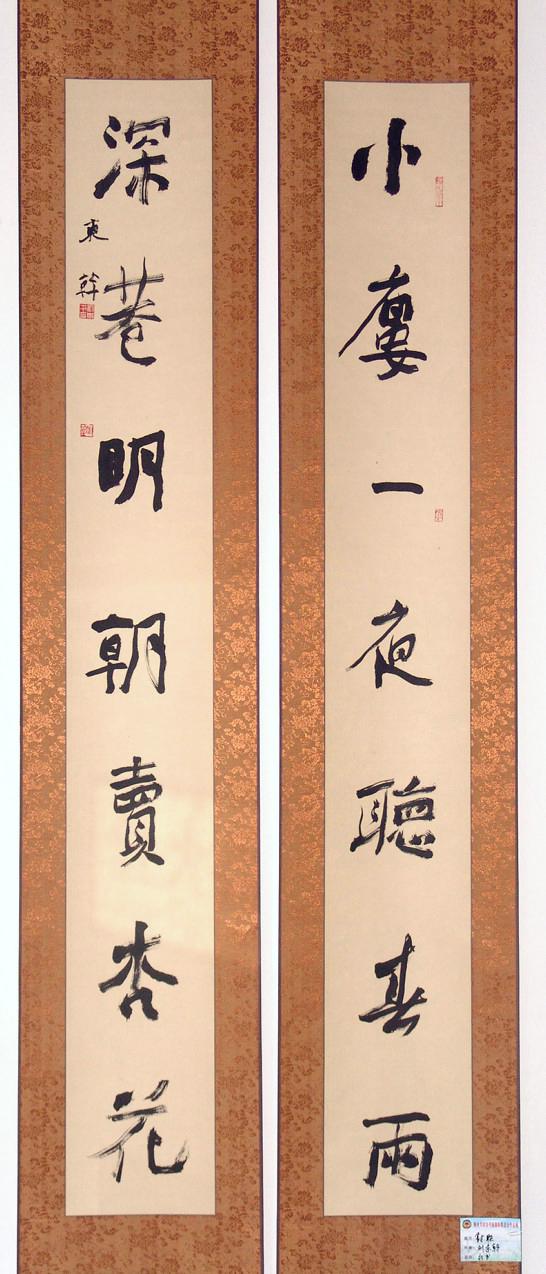 小廔一夜聽春雨
深巷明朝賣杏花
東幹